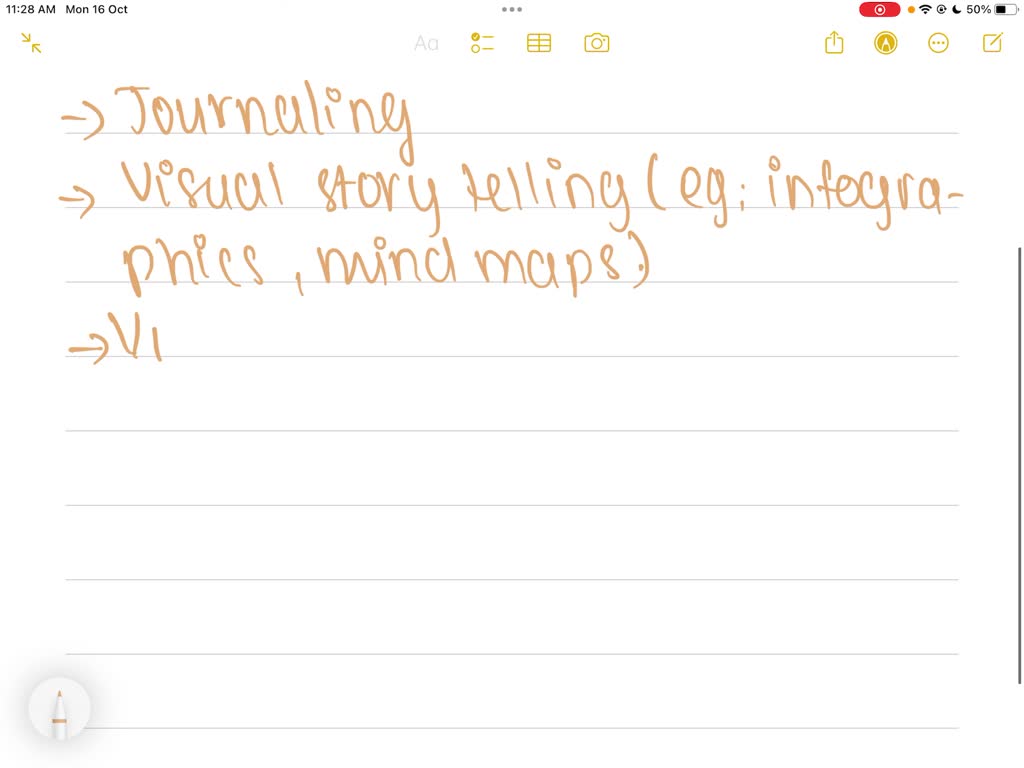 11:28 AM Mon 16 Oct
50%
Aa
→ Journaling
→ Visual story telling (eg; infogra-
phics, mind maps.)
→ Vi